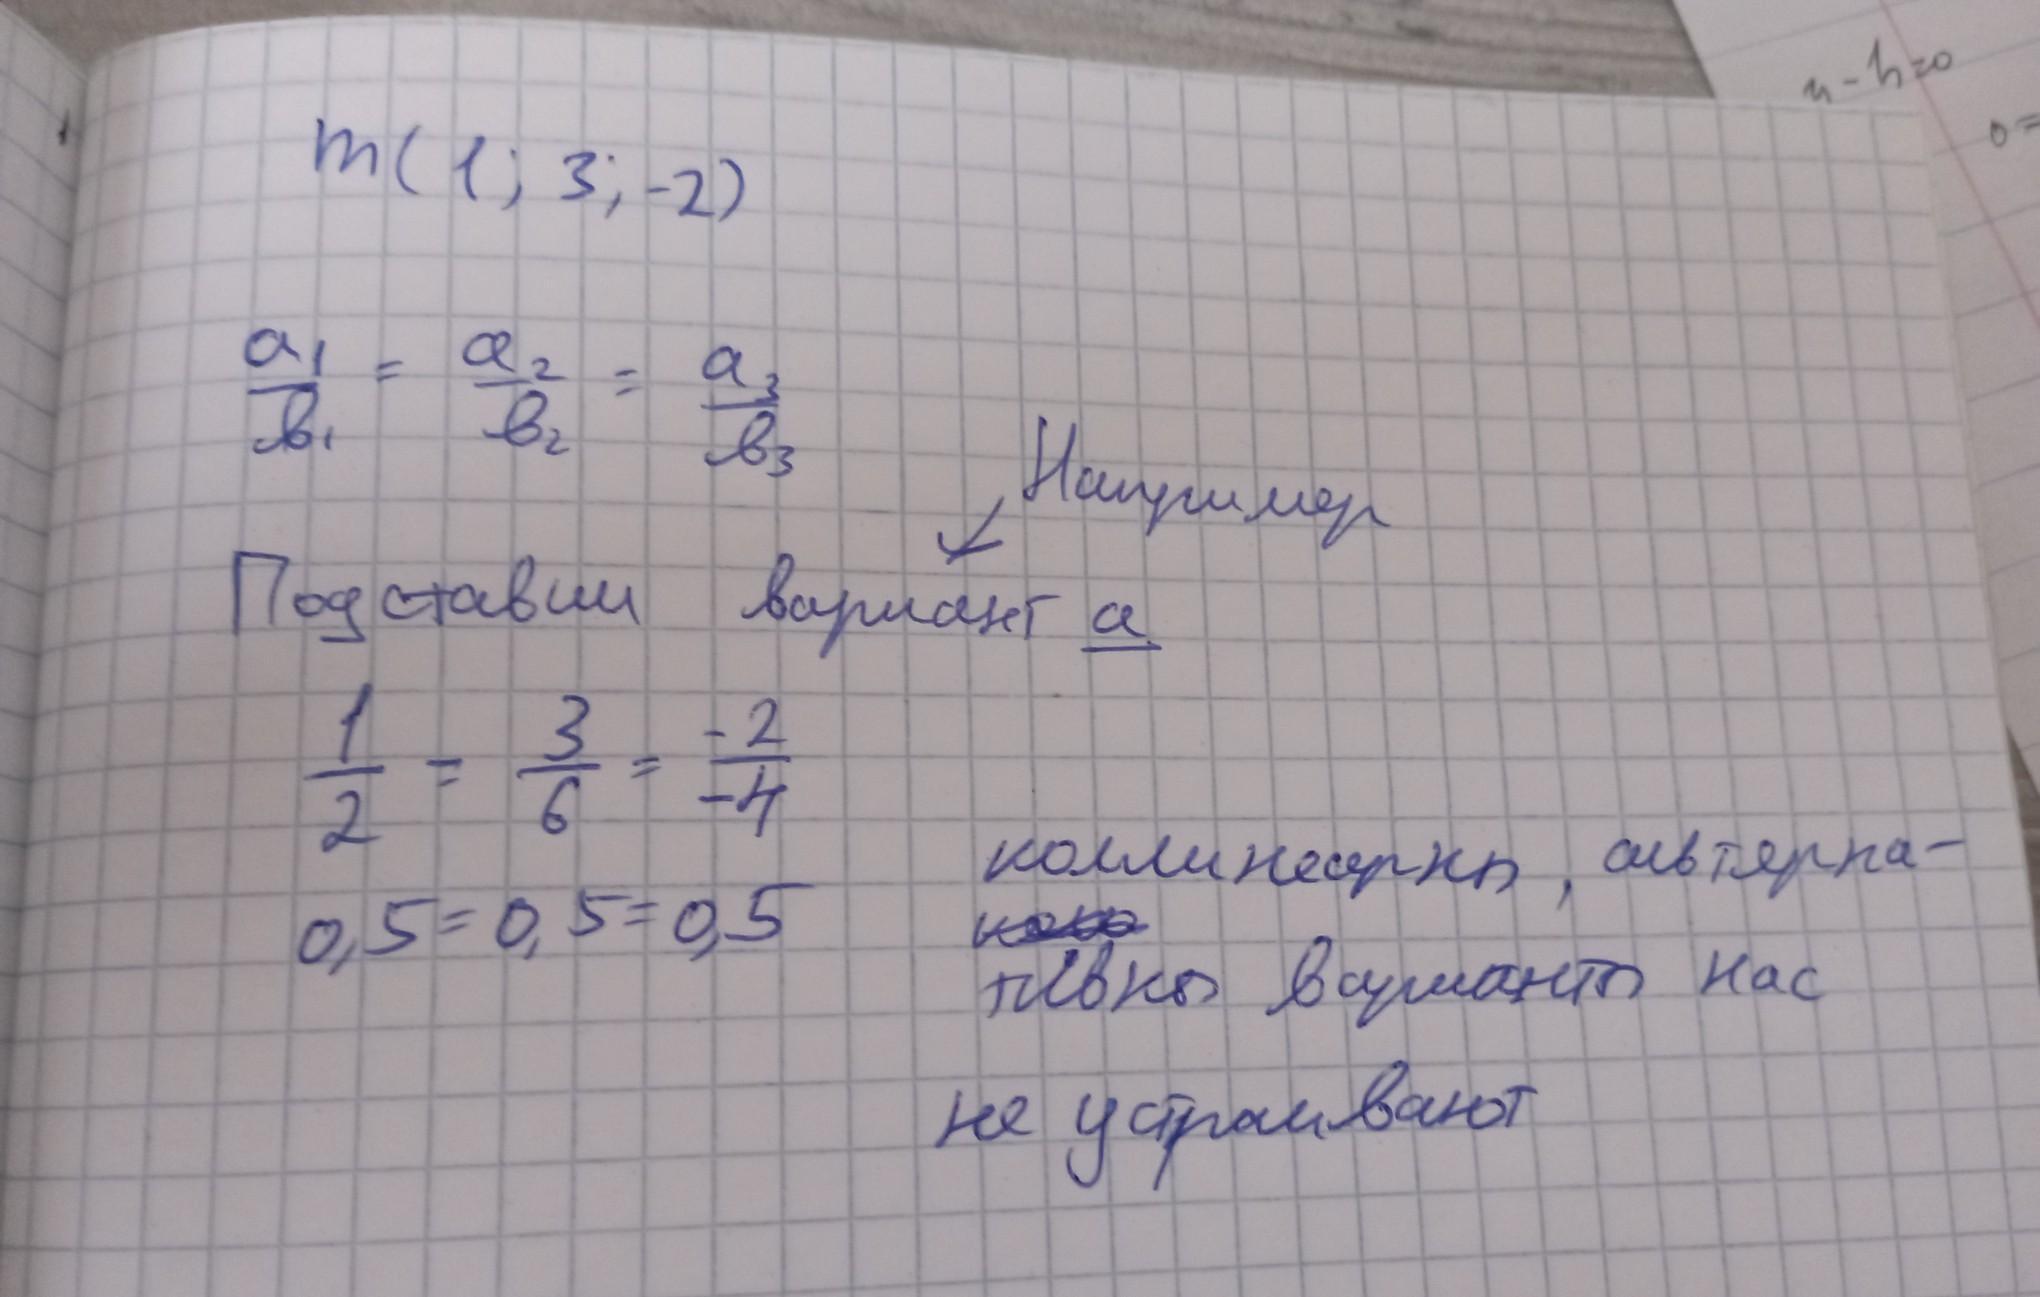 m(1; 3; -2)
a₁/в₁ = a₂/в₂ = a₃/в₃
Например
Подставим вариант а
1/2 = 3/6 = -2/-4
0,5 = 0,5 = 0,5
коллинеарны, альтерна-
тивны варианты нас
не устраивают
n - h = 0
0 =